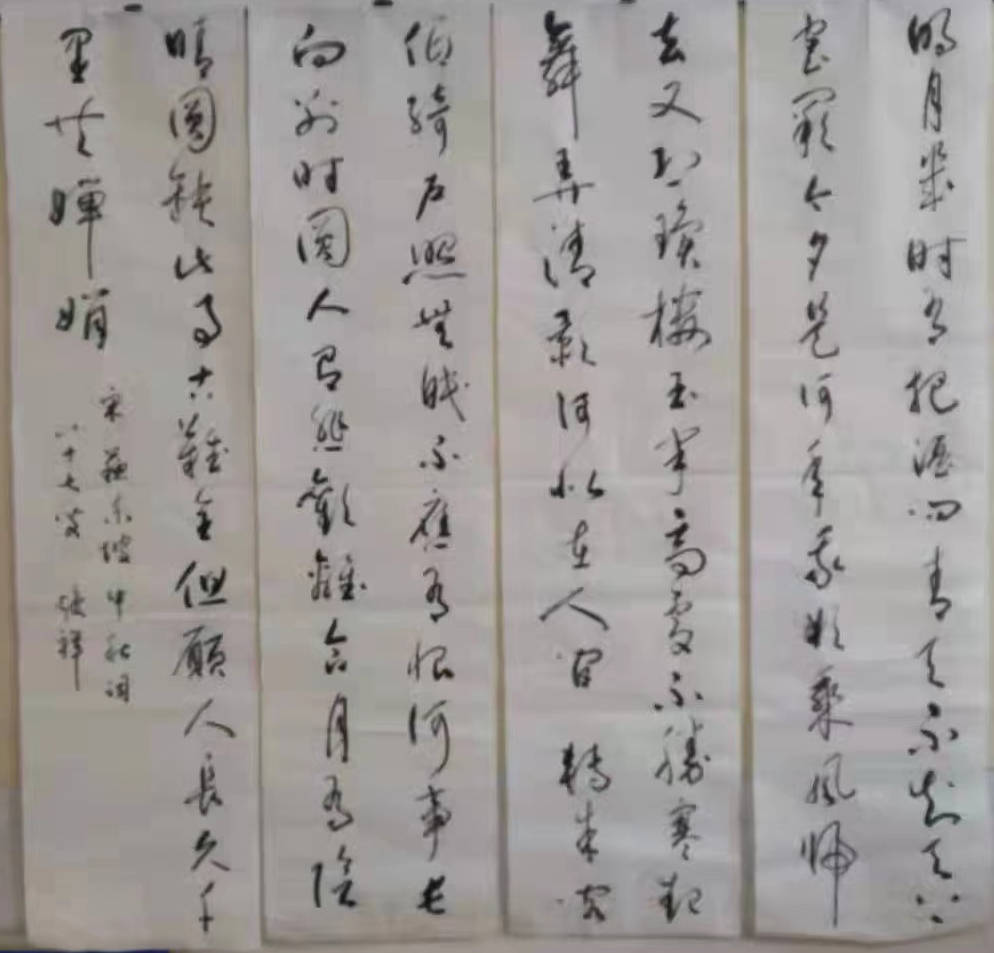 明月幾时有把酒问青天不知天上
宫闕今夕是何年我欲乘風归
去又恐瓊楼玉宇高处不勝寒起
舞弄清影何似在人间 轉朱阁
低綺户照無眠不應有恨何事长
向别时圆人有悲歡離合月有陰
晴圆缺此事古難全但願人長久千
里共嬋娟
宋蘇东坡中秋词
八十七叟 祥